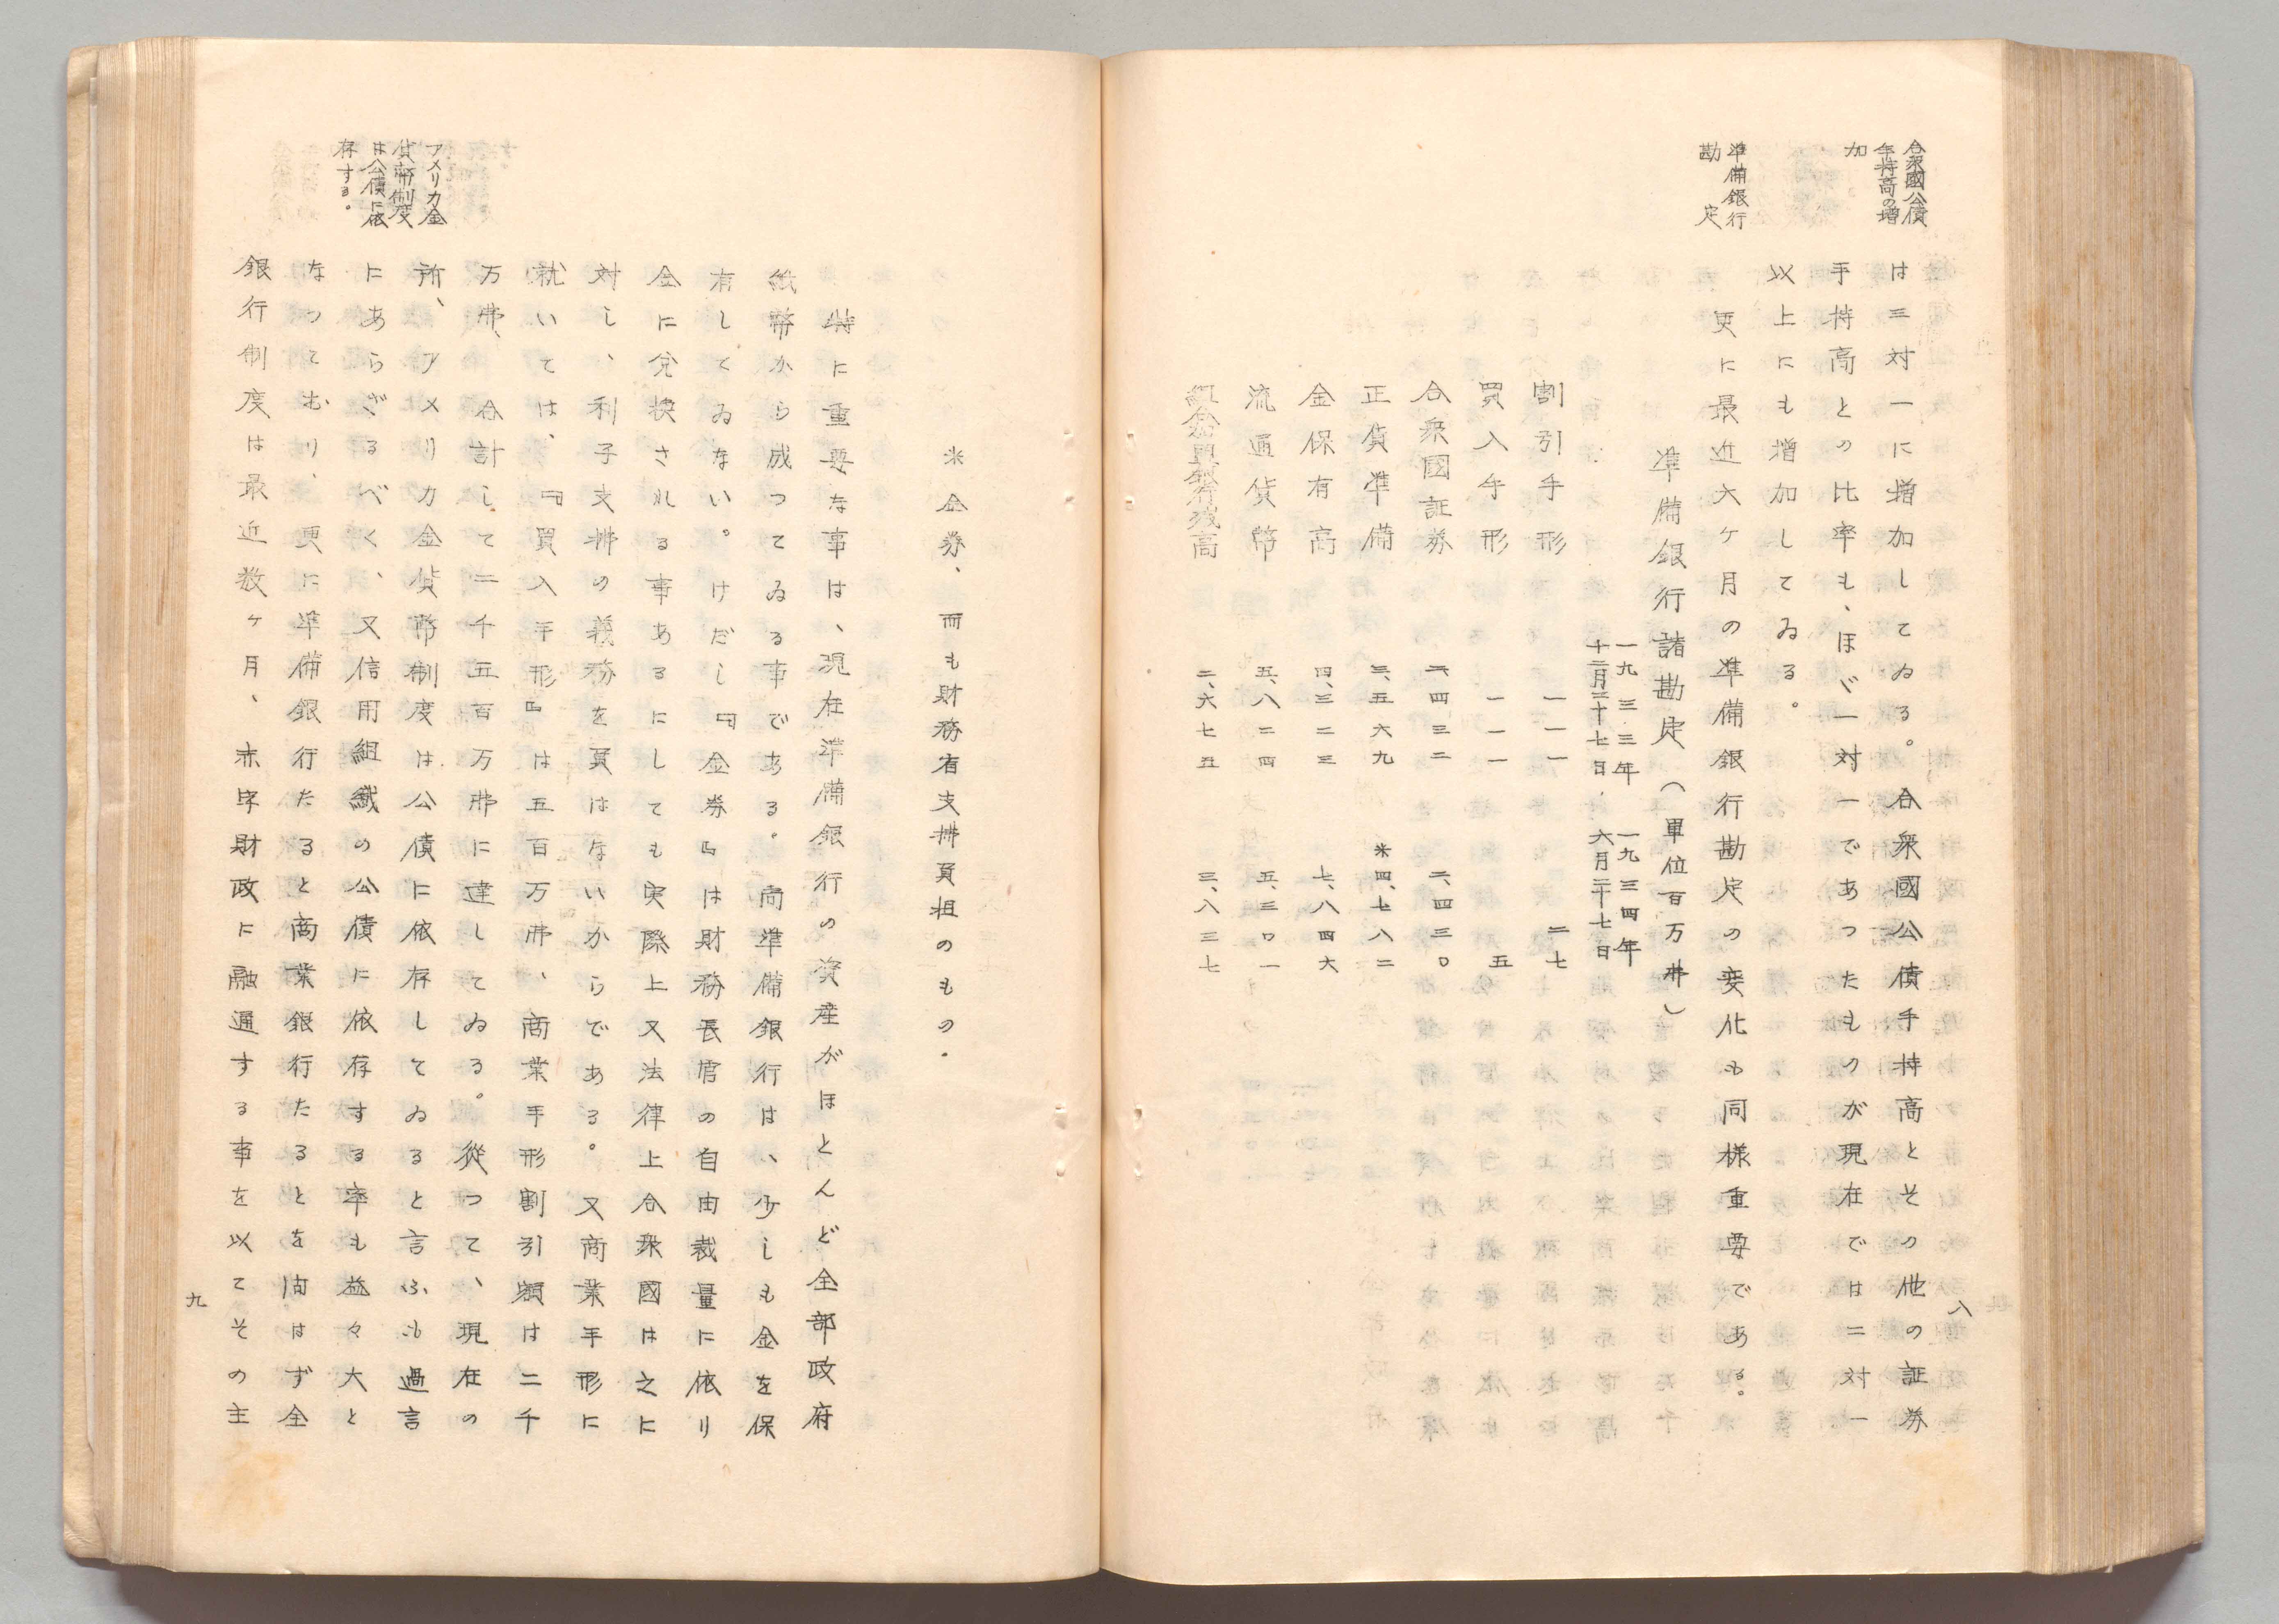 合衆國公債
手持高の増
加
準備銀行
勘定
は三対一に増加してゐる。合衆國公債手持高とその他の証券
手持高との比率も、ほゞ一対一であつたものが現在では二対一
以上にも増加してゐる。
更に最近六ヶ月の準備銀行勘定の変化も同様重要である。
準備銀行諸勘定(單位百万弗)
一九三三年 一九三四年
十二月二十七日 六月二十七日
割引手形 一一一 二七
買入手形 一一一 五
合衆國証券 二、四三二 二、四三〇
正貨準備 三、五六九 米四、七八二
金保有高 四、三二三 七、八四六
流通貨幣 五、八二四 五、三〇一
組合員銀行残高 二、六七五 三、八三七
八
アメリカ金
貨幣制度
は公債に依
存する。
米金券、而も財務省支拂負担のもの.
特に重要な事は、現在準備銀行の資産がほとんど全部政府
紙幣から成つてゐる事である。尚準備銀行は、少しも金を保
有してゐない。けだし『金券』は財務長官の自由裁量に依り
金に兌換される事あるにしても実際上又法律上合衆國は之に
対し、利子支拂の義務を負はないからである。又商業手形に
就いては、『買入手形』は五百万弗、商業手形割引額は二千
万弗、合計して二千五百万弗に達してゐる。從つて、現在の
所、アメリカ金貨幣制度は公債に依存してゐると言ふも過言
にあらざるべく、又信用組織の公債に依存する率も益々大と
なつており、更に準備銀行たると商業銀行たるとを問はず全
銀行制度は最近数ヶ月、赤字財政に融通する事を以てその主
九